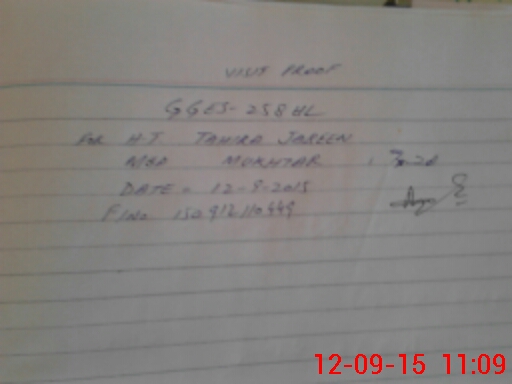 VISIT PROOF
GGES-258HL
FOR H.T TAHIRA JABEEN
MBA MUKHTAR
DATE = 12-9-2015
12-09-15 11:09